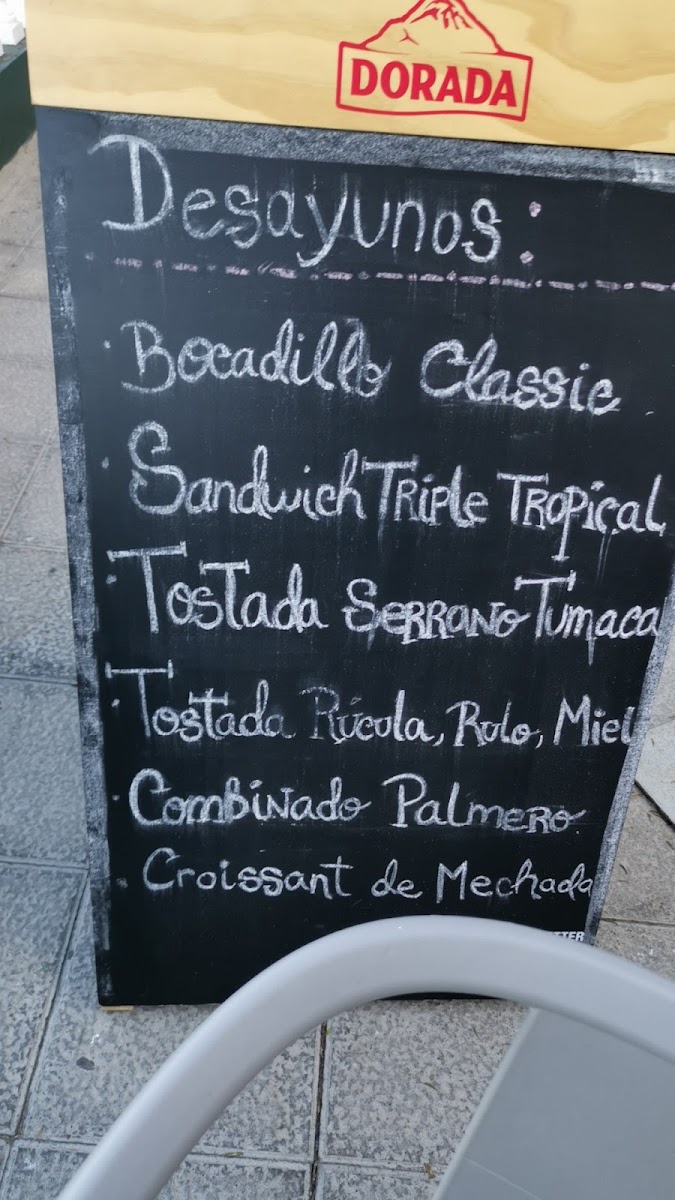 DORADA
Desayunos:
· Bocadillo Classic
· Sandwich Triple Tropical
· Tostada Serrano Tumaca
· Tostada Rúcola, Rulo, Miel
· Combinado Palmero
· Croissant de Mechada